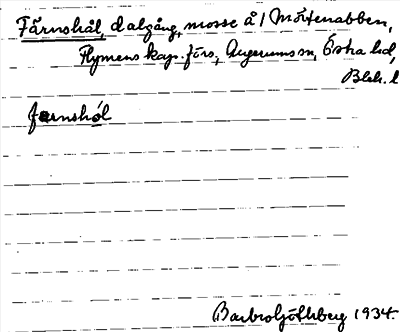 Färnshål, dalgång, mosse å 1 Mörtenabben,
Flymens kap. förs, Augerums sn, Östra hd,
Blek. l
farnshól
Barbro Götlsberg 1934.